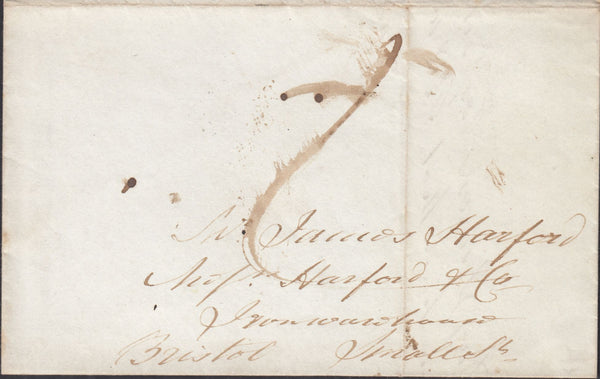 7
Mr. James Harford
Messrs. Harford & Co
Ironwarehouse
Bristol Small St.